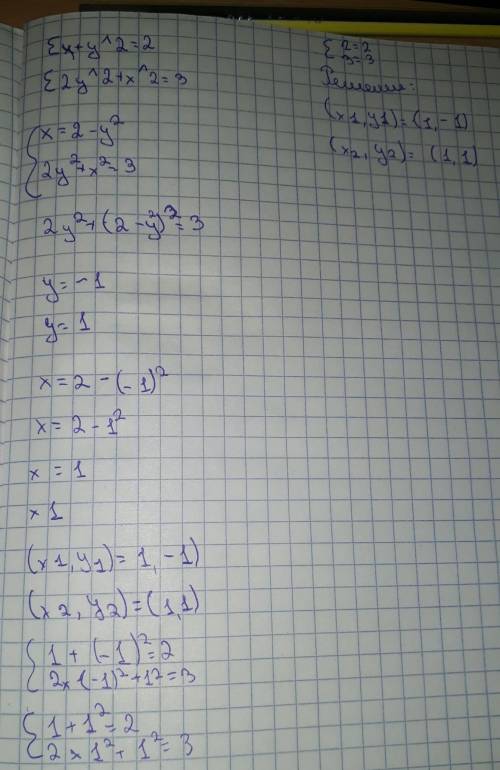 {x+y^2=2
{2y^2+x^2=3
{x=2-y²
2y²+x²=3
2y²+(2-y²)²=3
y=-1
y=1
x=2-(-1)²
x=2-1²
x=1
x1
(x1,y1)=1,-1)
(x2,y2)=(1,1)
{1+(-1)²=2
2x(-1)²+1²=3
{1+1²=2
2x1²+1²=3
{2=2
3=3
Решения:
(x1,y1)=(1,-1)
(x2,y2)=(1,1)